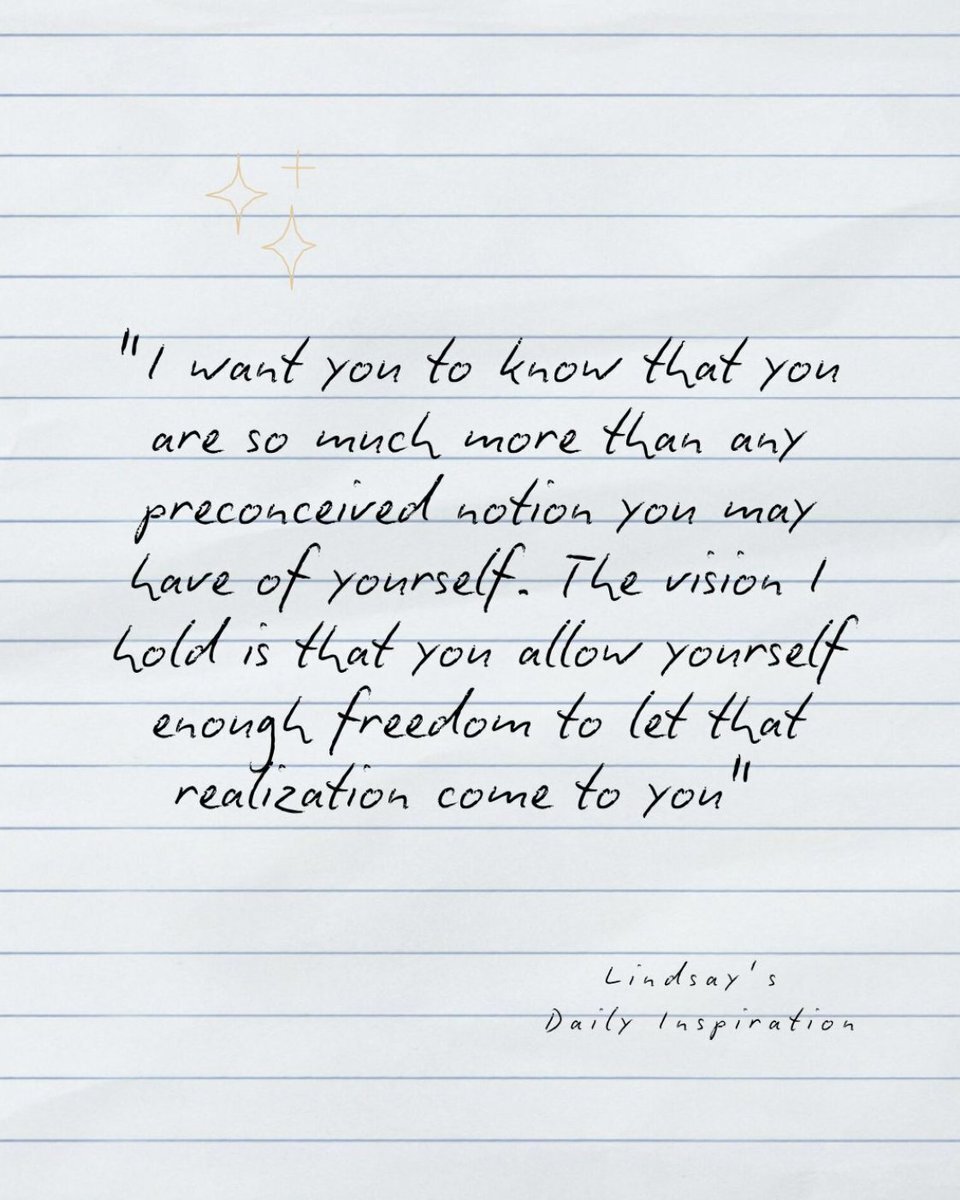 "I want you to know that you
are so much more than any
preconceived notion you may
have of yourself. The vision I
hold is that you allow yourself
enough freedom to let that
realization come to you"
Lindsay's
Daily Inspiration